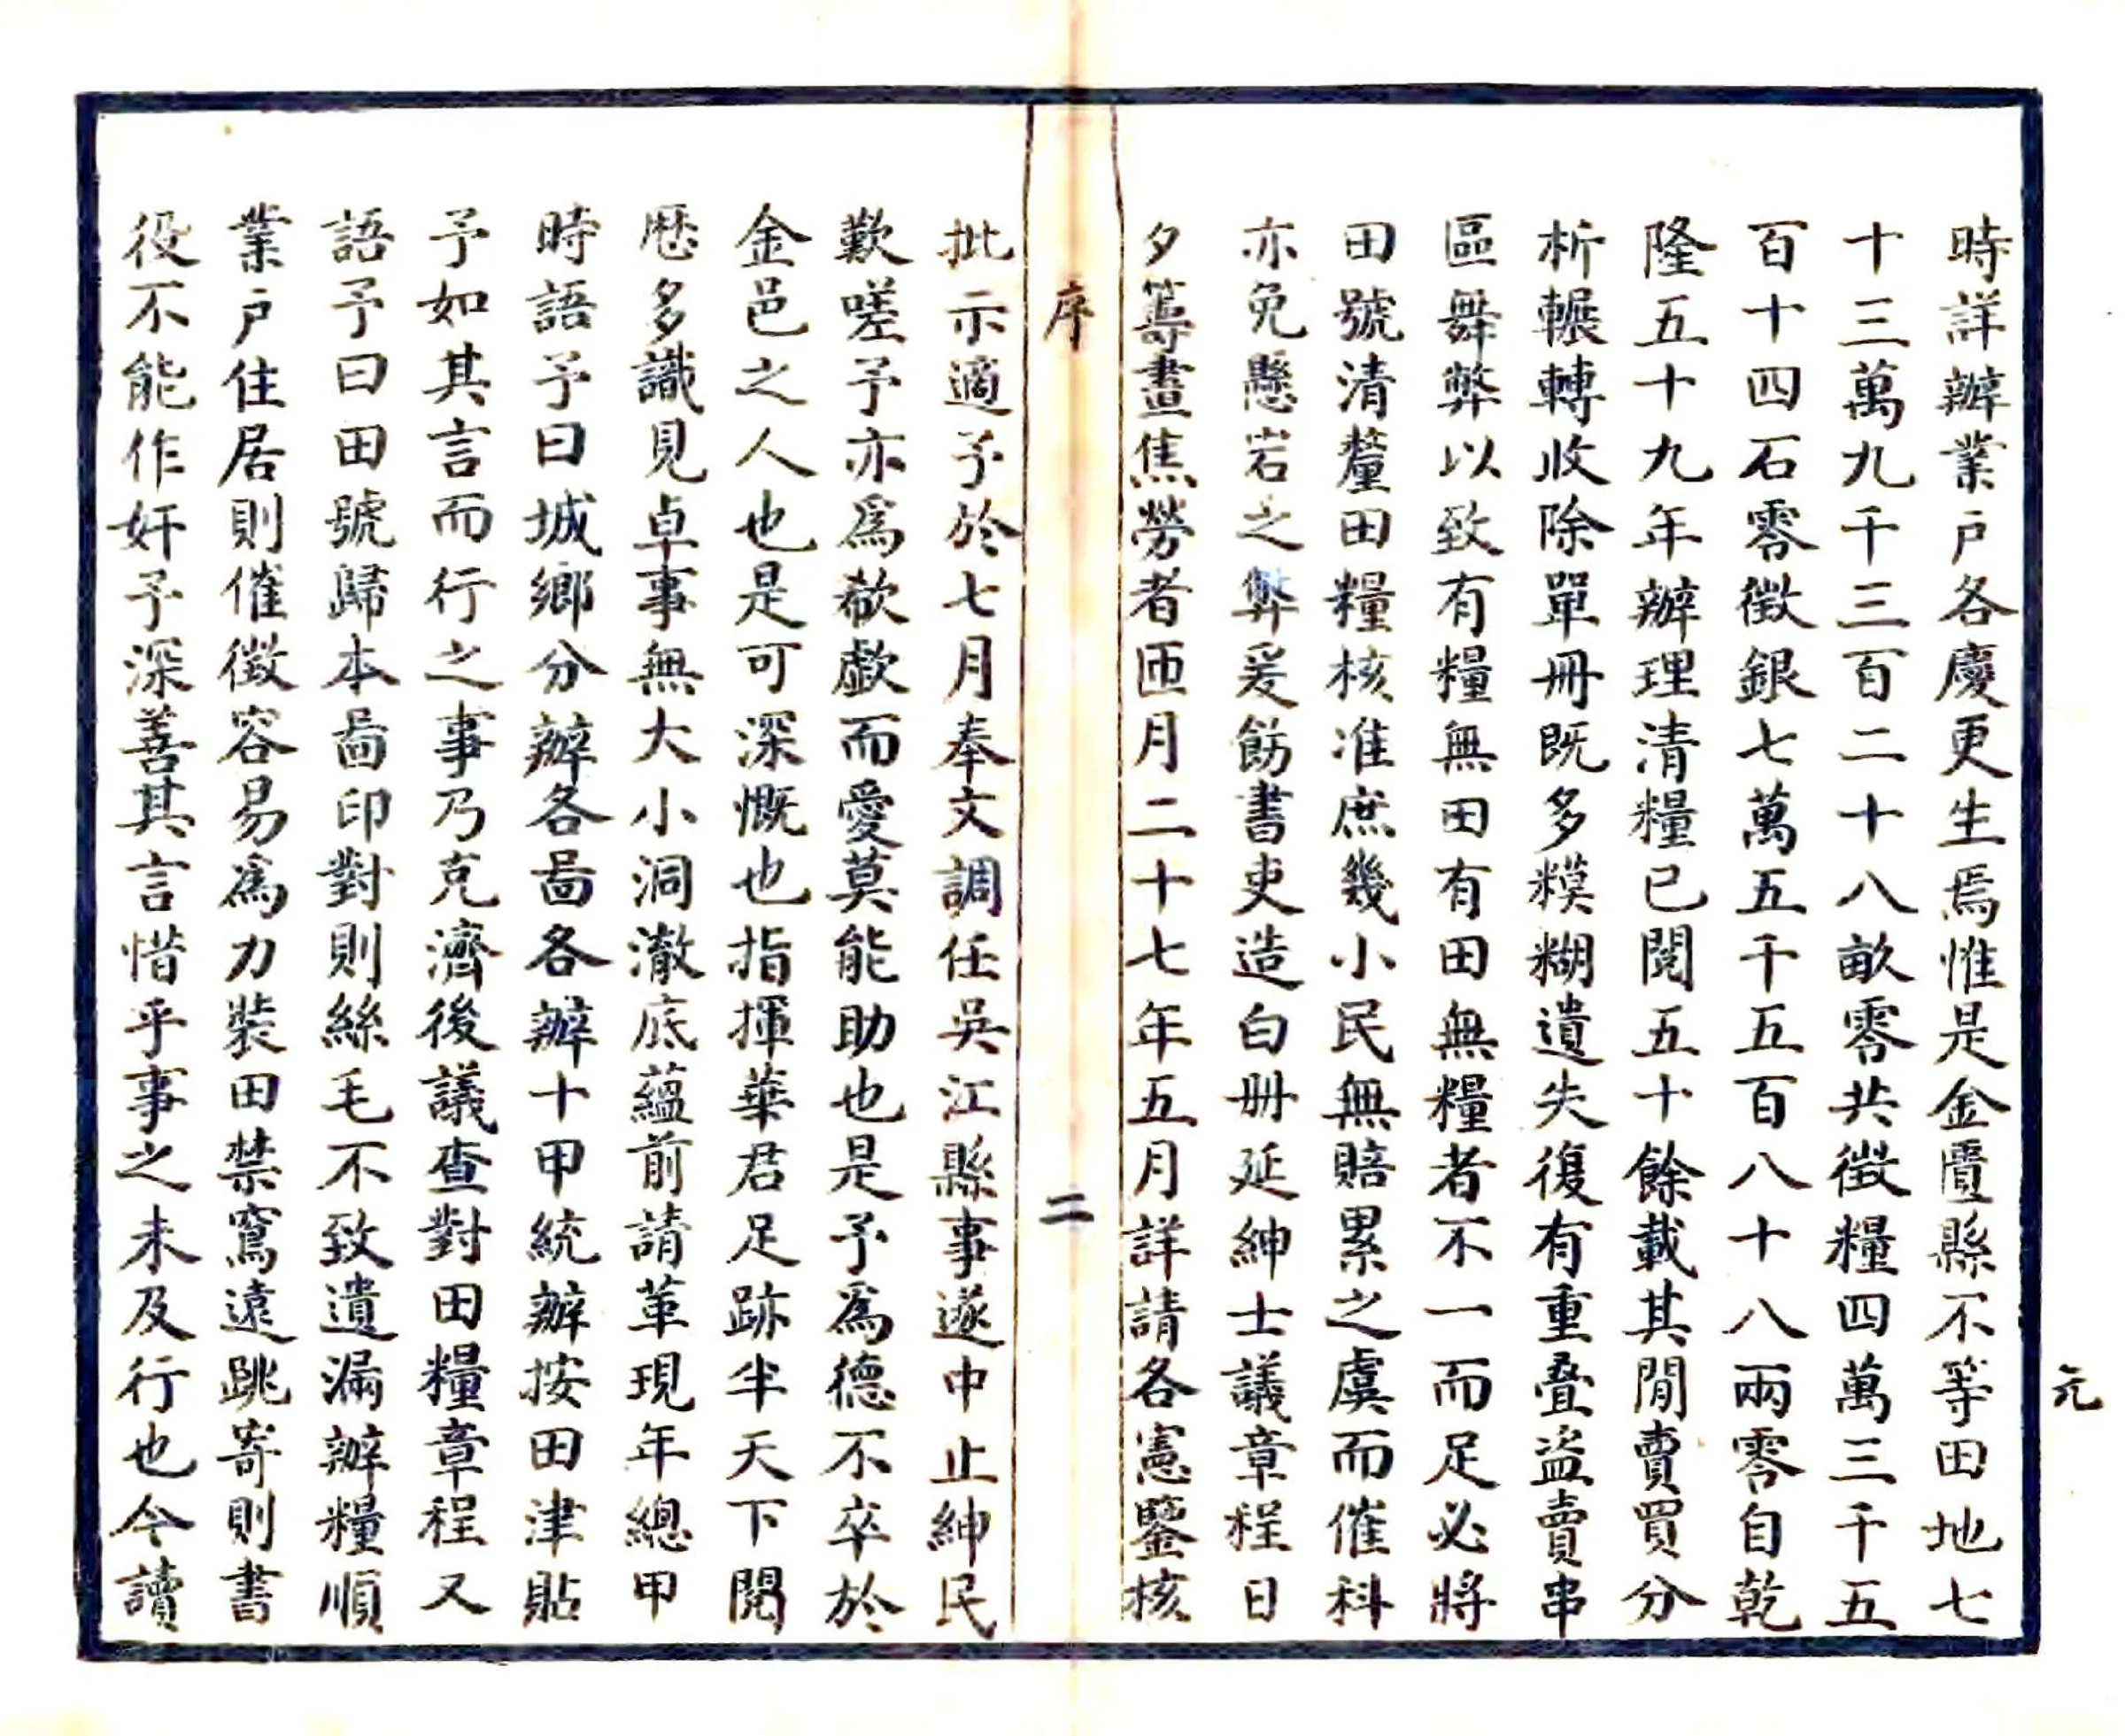 時詳辦業戶各慶更生焉惟是金匱縣不等田地七
十三萬九千三百二十八畝零共徵糧四萬三千五
百十四石零徵銀七萬五千五百八十八兩零自乾
隆五十九年辦理清糧已閱五十餘載其閒賣買分
析輾轉收除單冊既多糢糊遺失復有重疊盜賣串
區舞弊以致有糧無田有田無糧者不一而足必將
田號清釐田糧核准庶幾小民無賠累之虞而催科
亦免懸宕之弊爰飭書吏造白册延紳士議章程日
夕籌畫焦勞者匝月二十七年五月詳請各憲鑒核
序
二
批示適予於七月奉文調任吳江縣事遂中止紳民
歎嗟予亦為欷歔而愛莫能助也是予為德不卒於
金邑之人也是可深慨也指揮華君足跡半天下閱
歷多識見卓事無大小洞澈底蘊前請革現年總甲
時語予曰城鄉分辦各啚各辦十甲統辦按田津貼
予如其言而行之事乃克濟後議查對田糧章程又
語予曰田號歸本啚印對則絲毛不致遺漏辦糧順
業戶住居則催徵容易為力裝田禁寫遠跳寄則書
役不能作奸予深善其言惜乎事之未及行也今讀
元